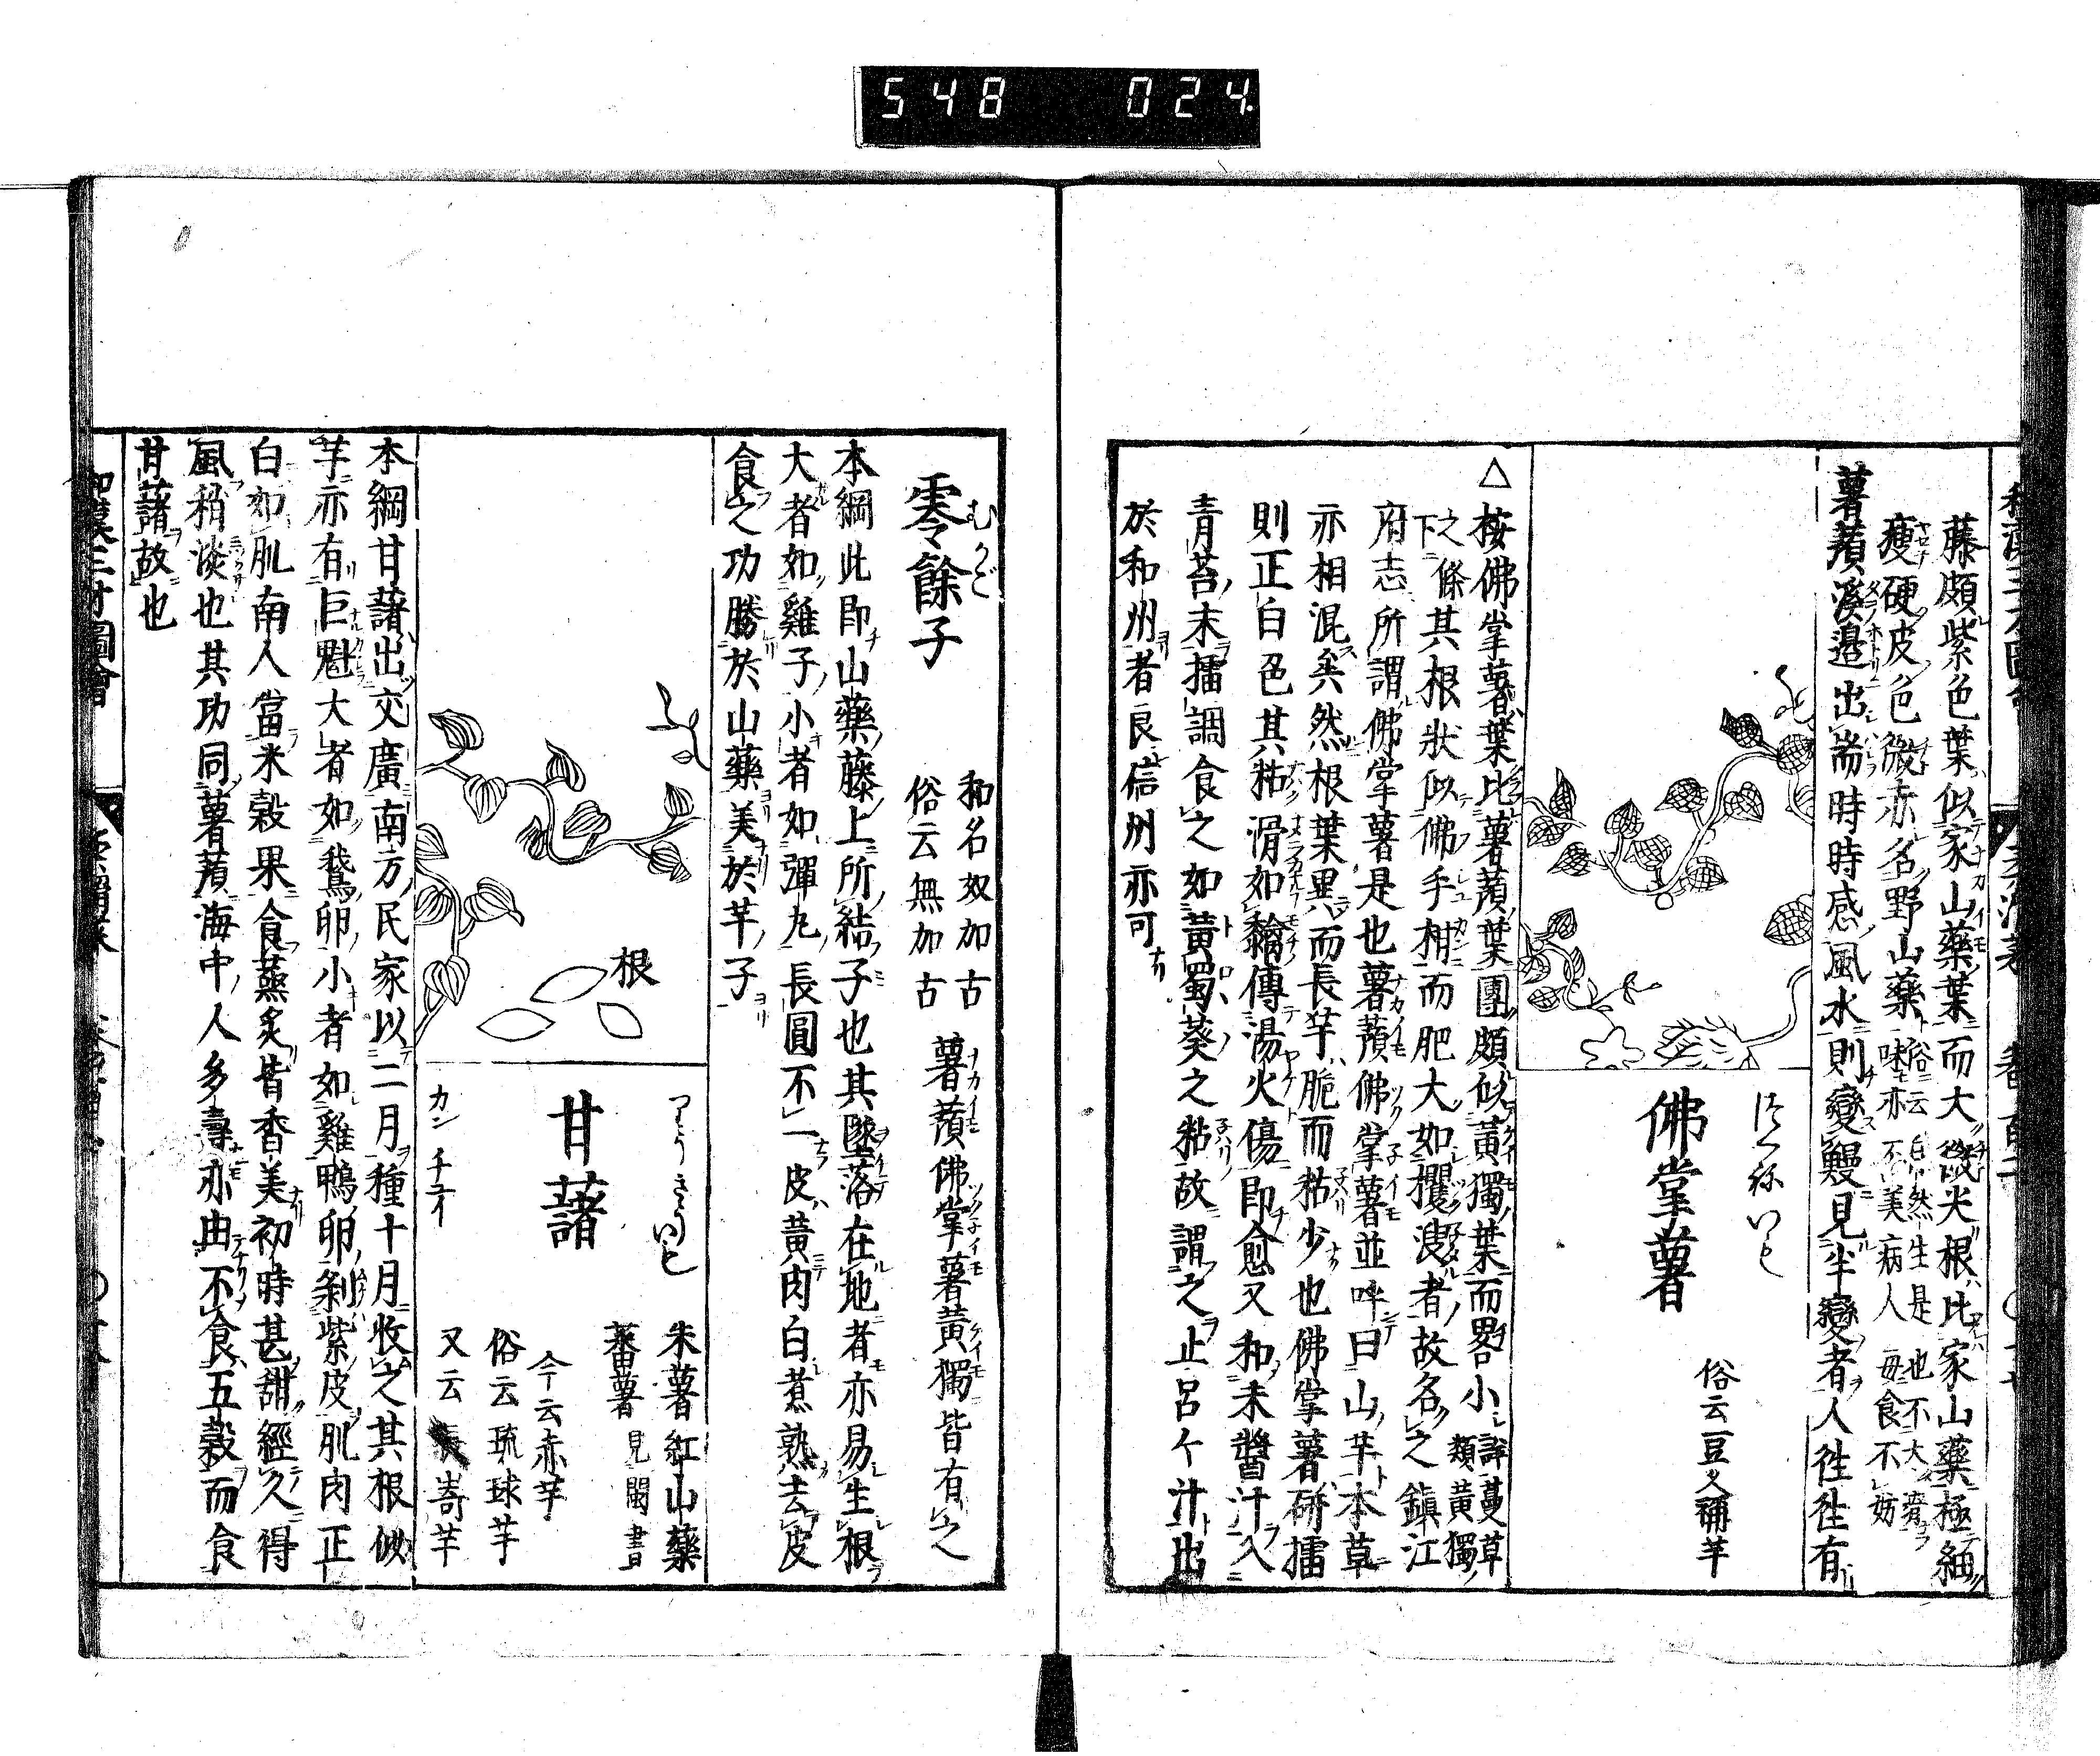 548 024
藤頗紫色葉似家山藥葉而大微尖根比家山藥極細
瘦硬皮色微赤名野山藥俗云自然生是也不大齊
味亦不美病人毋食不妨
薯蕷溪邉出耑時時感風水則變鰻見半變者人徃徃有
つくねいも
佛掌薯
俗云豆久禰芋
△按佛掌薯葉比薯蕷葉團頗似黃獨葉而畧小詳蔓草類黃獨
之條下其根狀似佛手柑而肥大如攫溲者故名之鎮江
府志所謂佛掌薯是也薯蕷佛掌薯並呼曰山芋本草
亦相混矣然根葉異而長芋脆而粘少也佛掌薯硏擂
則正白色其粘滑如黐傳湯火傷即愈又和未醬汁入
青苔末擂調食之如黃蜀葵之粘故謂之止呂々汁出
於和州者良信州亦可
むかご
零餘子
和名奴加古
俗云無加古
薯蕷佛掌薯黃獨皆有之
本綱此即山藥藤上所結子也其墜落在地者亦易生根
大者如雞子小者如彈丸長圓不一皮黃肉白煮熟去皮
食之功勝於山藥美於芋子
根
りうきういも
甘藷
カン チユイ
朱薯 紅山藥
蕃薯 見閩書
今云赤芋
俗云琉球芋
又云長﨑芋
本綱甘藷出交廣南方民家以二月種十月收之其根似
芋亦有巨魁大者如鵞卵小者如雞鴨卵剝紫皮肌肉正
白如肌南人當米穀果食蒸炙皆香美初時甚甜經久得
風稍淡也其功同薯蕷海中人多壽亦由不食五穀而食
甘藷故也
和漢三才圖會